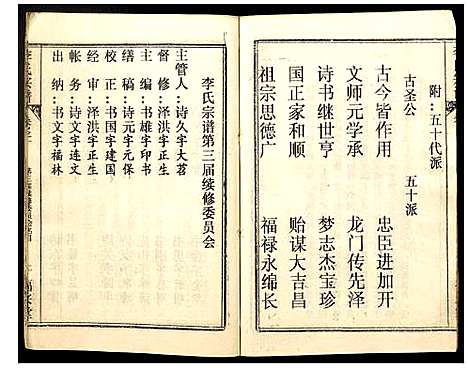 附：五十代派
古圣公　五十派
古今皆作用　忠臣进加开
文师元学承　龙门传先泽
诗书继世亨　梦志杰宝珍
国正家和顺　贻谋大吉昌
祖宗思德广　福禄永绵长
李氏宗谱第三届续修委员会
主管人：诗久字大茗
督修：泽洪字正生
主编：书雄字印书
缮稿：诗元字元保
校正：书国字建国
经审：泽洪字正生
帐务：诗文字连文
出纳：书文字福林